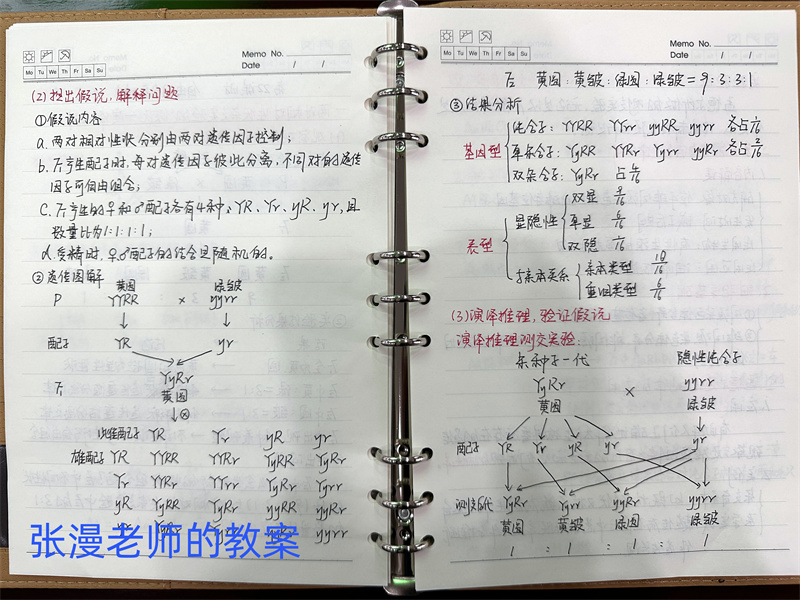 Memo No.
Mo Tu We Th Fr Sa Su
Date / /
(2) 提出假说,解释问题
①假说内容
a. 两对相对性状分别由两对遗传因子控制;
b. F₁产生配子时,每对遗传因子彼此分离,不同对的遗传
因子可自由组合;
c. F₁产生的♀和♂配子各有4种:YR、Yr、yR、yr,且
数量比为1:1:1:1;
d. 受精时,♀♂配子的结合是随机的。
②遗传图解
黄圆 绿皱
P YYRR × yyrr
↓ ↓
配子 YR yr
F₁ YyRr
黄圆
↓⊗
雌配子 YR Yr yR yr
雄配子 YR YYRR YYRr YyRR YyRr
Yr YYRr YYrr YyRr Yyrr
yR YyRR YyRr yyRR yyRr
yyrr
张漫老师的教案
Memo No.
Mo Tu We Th Fr Sa Su
Date / /
F₂ 黄圆:黄皱:绿圆:绿皱=9:3:3:1
③结果分析
基因型
纯合子:YYRR YYrr yyRR yyrr 各占1/16
单杂合子:YyRR YYRr Yyrr yyRr 各占2/16
双杂合子:YyRr 占4/16
表型
显隐性
双显 9/16
单显 6/16
双隐 1/16
与亲本关系
亲本类型 10/16
重组类型 6/16
(3) 演绎推理,验证假说
演绎推理测交实验:
杂种子一代 隐性纯合子
YyRr × yyrr
黄圆 绿皱
配子 YR Yr yR yr yr
测交后代 YyRr Yyrr yyRr yyrr
黄圆 黄皱 绿圆 绿皱
1 : 1 : 1 : 1